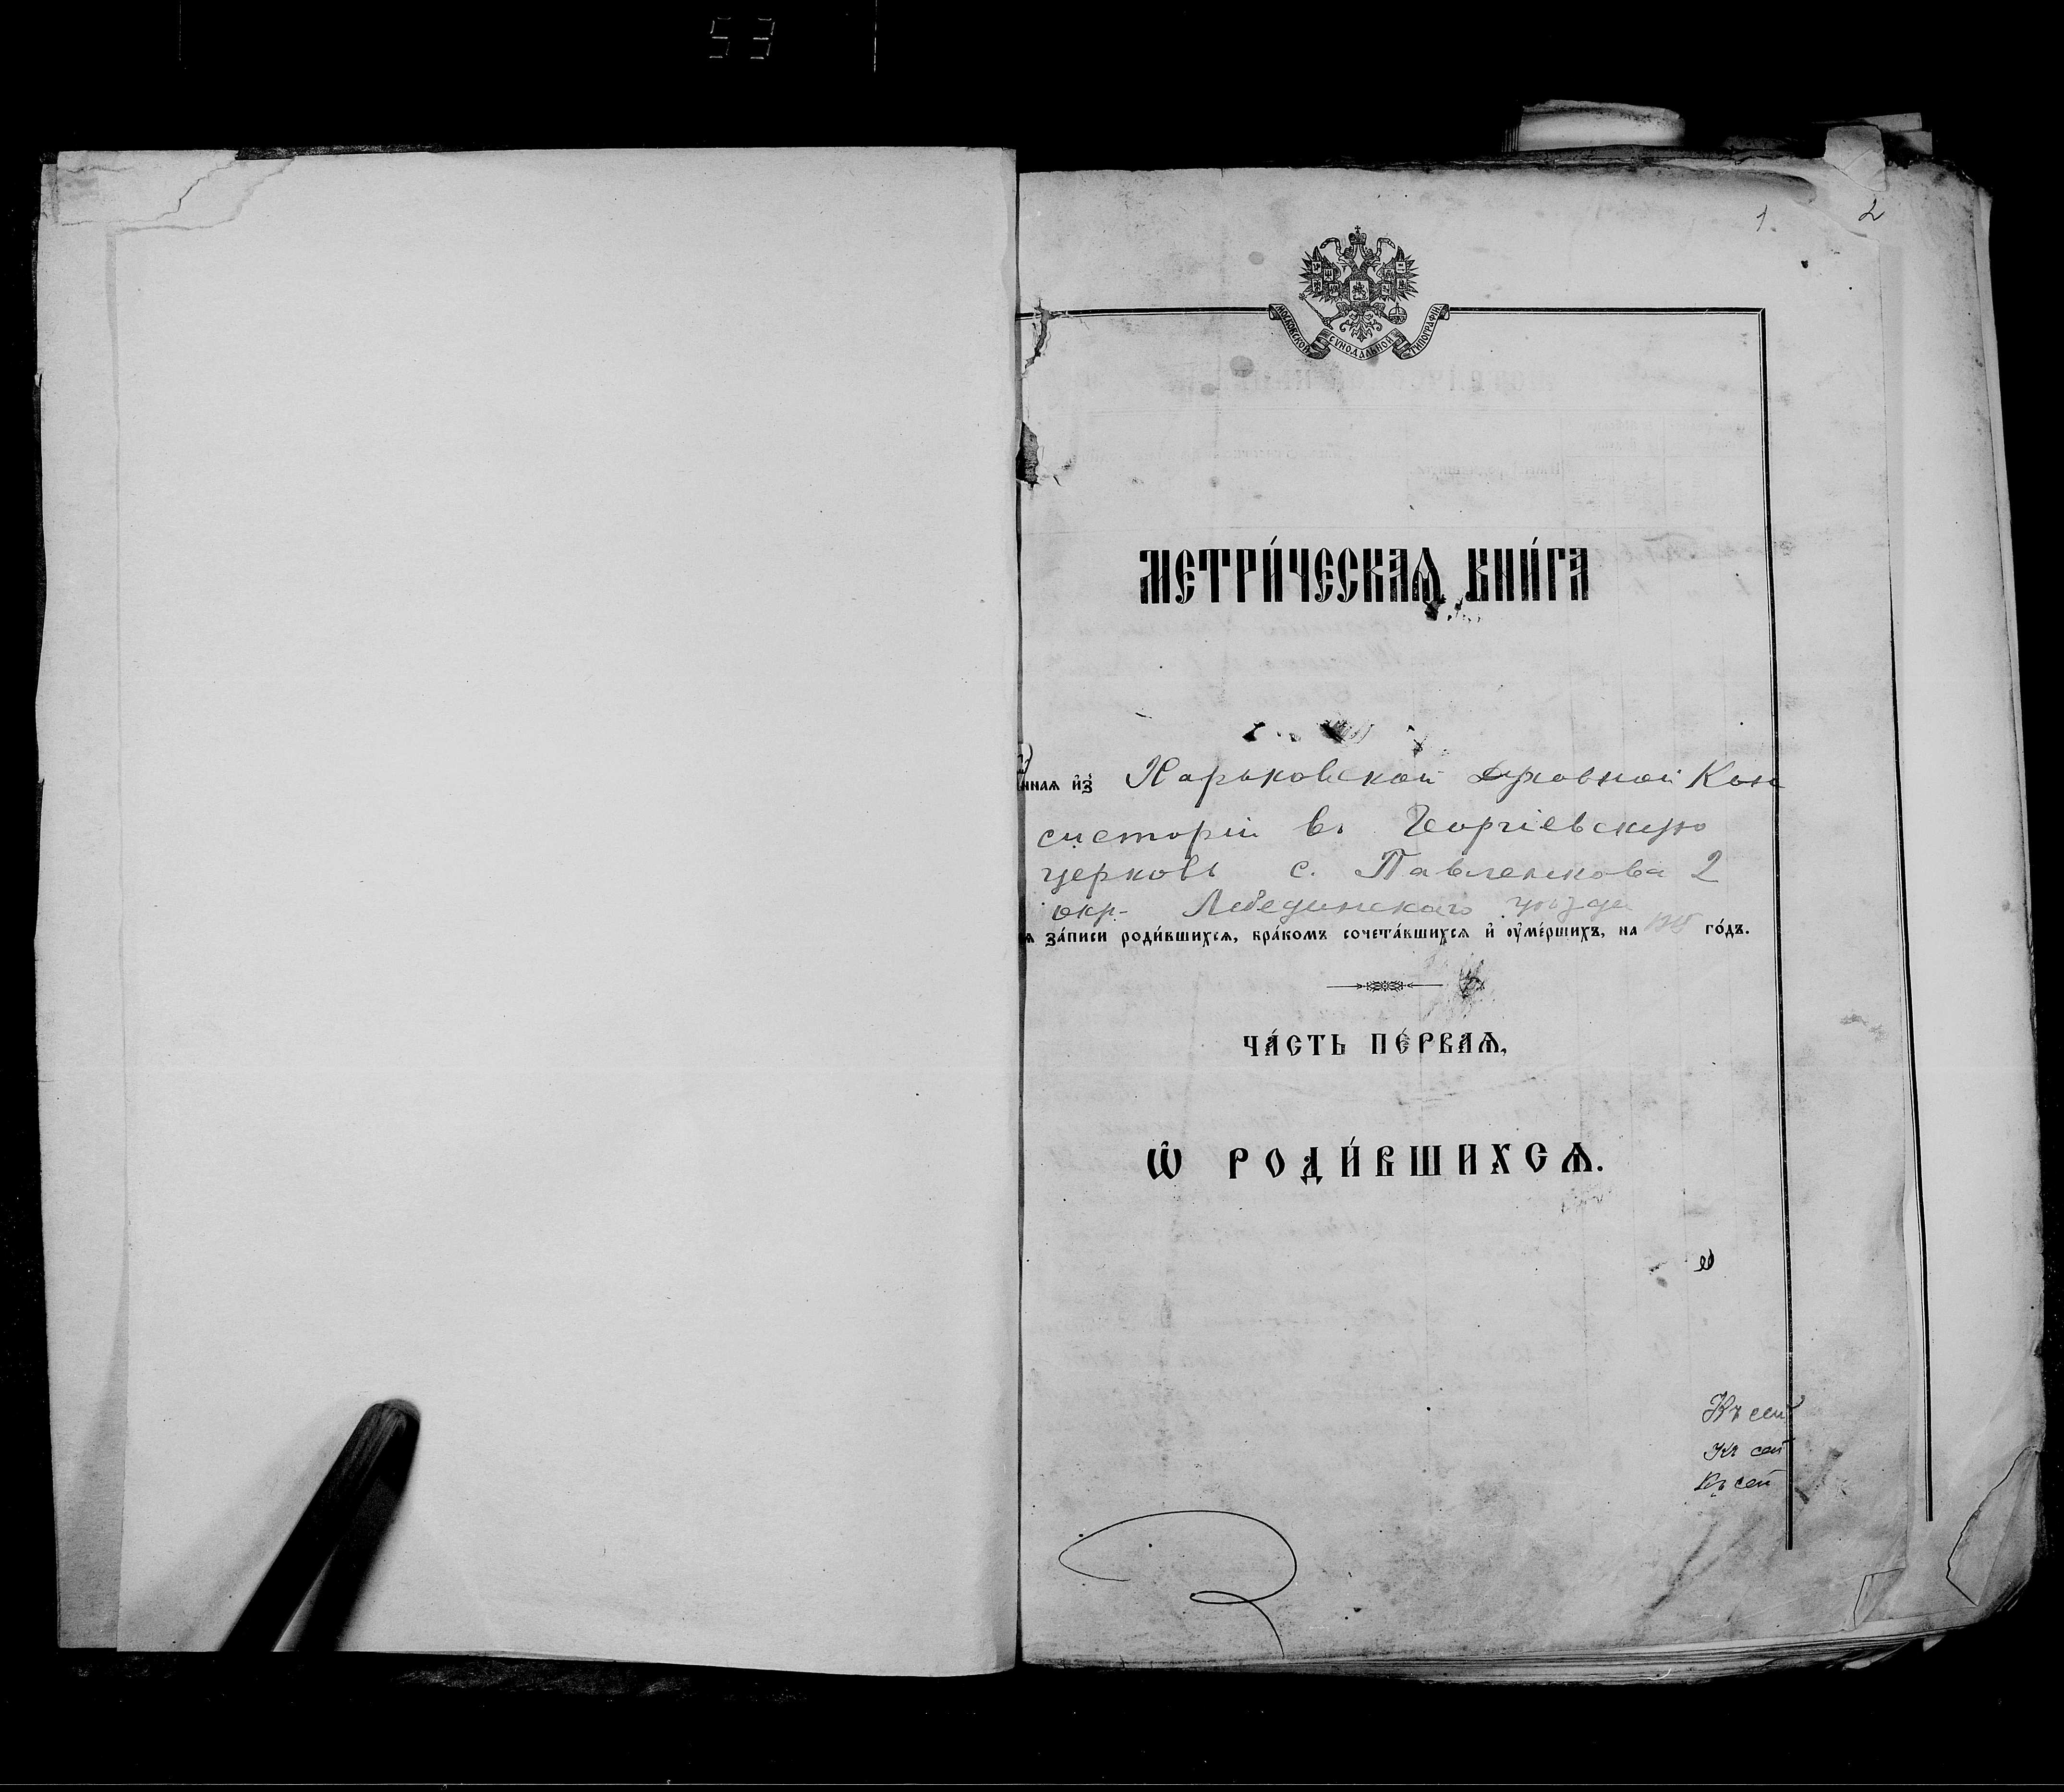 53
1.
2
МОСКОВСКОЙ СУНОДАЛЬНОЙ ТИПОГРАФІИ
МЕТРИ́ЧЕСКАѦ КНИ́ГА
ннаѧ и҆з̾ Харьковской Духовной Кон
систоріи въ Георгіевскую
церковь с. Павленкова 2
окр. Лебединскаго уѣзда
ѧ за́писи роди́вшихсѧ, бра́комъ сочета́вшихсѧ и҆ ѹ҆ме́ршихъ, на го́дъ.
ЧА́СТЬ ПЕ́РВАѦ,
Ѡ҆ РОДИ́ВШИХСѦ.
Къ сей
Къ сей
Къ сей